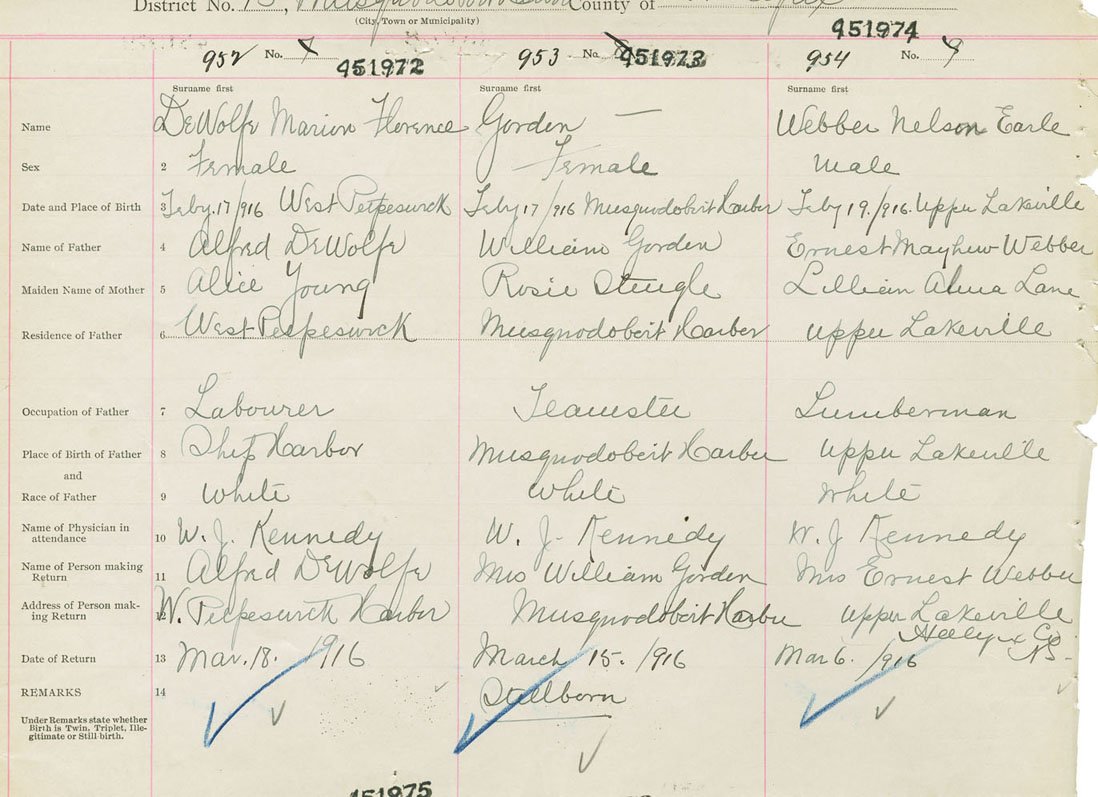 District No. 13, Musquodoboit Harbor County of
(City, Town or Municipality)
951974
952 No. 7 951972 953 No. 951973 954 No. 9
Surname first Surname first Surname first
Name DeWolfe Marion Florence Gorden — Webber Nelson Earle
Sex 2 Female Female Male
Date and Place of Birth 3 Feby. 17/916 West Petpeswick Feby 17/916 Musquodobort Harber Feby 19./916. Upper Lakeville
Name of Father 4 Alfred DeWolfe William Gorden Ernest Mayhew Webber
Maiden Name of Mother 5 Alice Young Rosie Lillian Alma Lane
Residence of Father 6 West Petpeswick Musquodoboit Harber Upper Lakeville
Occupation of Father 7 Labourer Teamster Lumberman
Place of Birth of Father 8 Ship Harbor Musquodoboit Harber Upper Lakeville
and
Race of Father 9 White White White
Name of Physician in
attendance 10 W. J. Kennedy W. J. Kennedy W. J Kennedy
Name of Person making
Return 11 Alfred DeWolfe Mrs William Gorden Mrs Ernest Webber
Address of Person mak-
ing Return 12 W. Petpeswick Harbor Musquodoboit Harber Upper Lakeville
Halifax Co
NS-
Date of Return 13 Mar. 18. 1916 March 15. /916 Mar 6. /916
REMARKS 14 Stillborn
Under Remarks state whether
Birth is Twin, Triplet, Ille-
gitimate or Still-birth.
951975